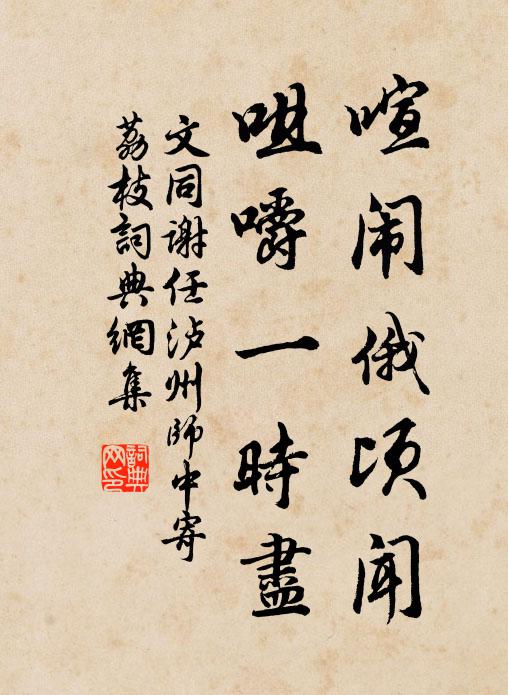 喧闹俄顷闻
咀嚼一時盡
文同谢任泸州師中寄
荔枝詞典網集
詞典网印